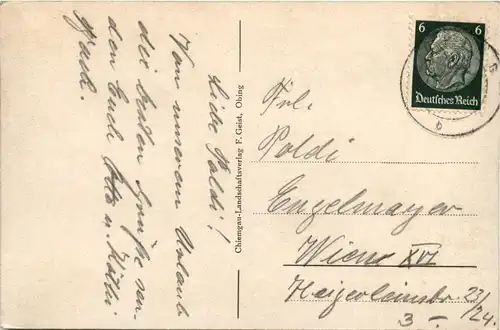 Liebe Poldi!
Von unserem Urlaub
die besten Grüße sen-
den Euch Otto u. Käthi
Chiemgau-Landschaftsverlag F. Geist, Obing
6 6
Deutsches Reich
b
Frl.
Poldi
Engelmayer
Wien XVI
23/24.
3 –